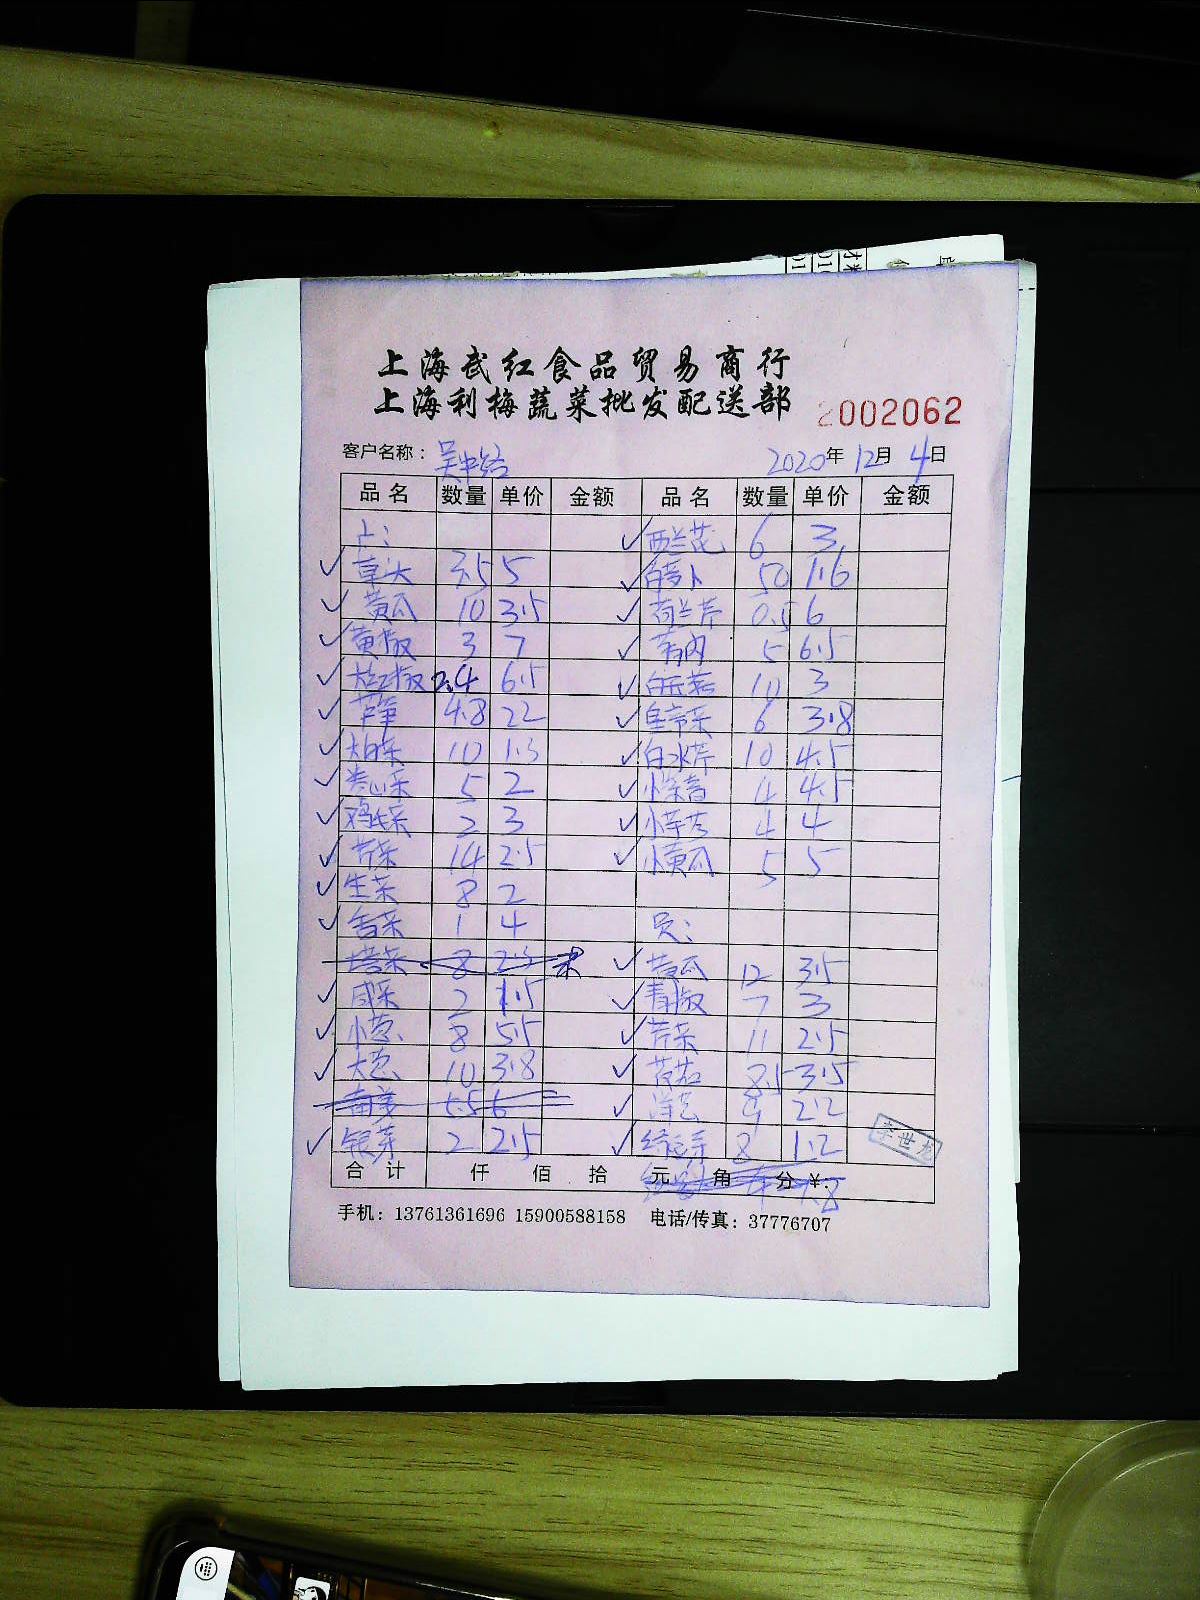 上海武红食品贸易商行
上海利梅蔬菜批发配送部
2002062
客户名称：吴中路 2020年12月4日
品名 数量 单价 金额 品名 数量 单价 金额
上： ✓西兰花 6 3
✓草头 3.5 5 ✓白萝卜 50 1.6
✓黄瓜 10 3.5 ✓荷兰芹 0.5 6
✓黄椒 3 7 ✓ 5 6.5
✓大红椒 2.4 6.5 ✓ 10 3
✓芦笋 4.8 22 ✓ 6 3.8
✓大白菜 10 1.3 ✓白水芹 10 4.5
✓卷心菜 5 2 ✓ 4 4.5
✓鸡毛菜 2 3 ✓小芋艿 4 4
✓芹菜 14 2.5 ✓小黄瓜 5 5
✓生菜 8 2
✓香菜 1 4 员：
塔菜 8 2.3 未 ✓黄瓜 12 3.5
✓咸菜 2 1.5 ✓青椒 7 3
✓小葱 8 5.5 ✓芹菜 11 2.5
✓大葱 10 3.8 ✓茭茹 8.5 3.5
5.5 6 ✓洋葱 9 2.2
✓银芽 2 2.5 ✓绿豆芽 8 1.2
李世龙
合计 仟 佰 拾 元 角 分 ¥：
手机：13761361696 15900588158 电话/传真：37776707